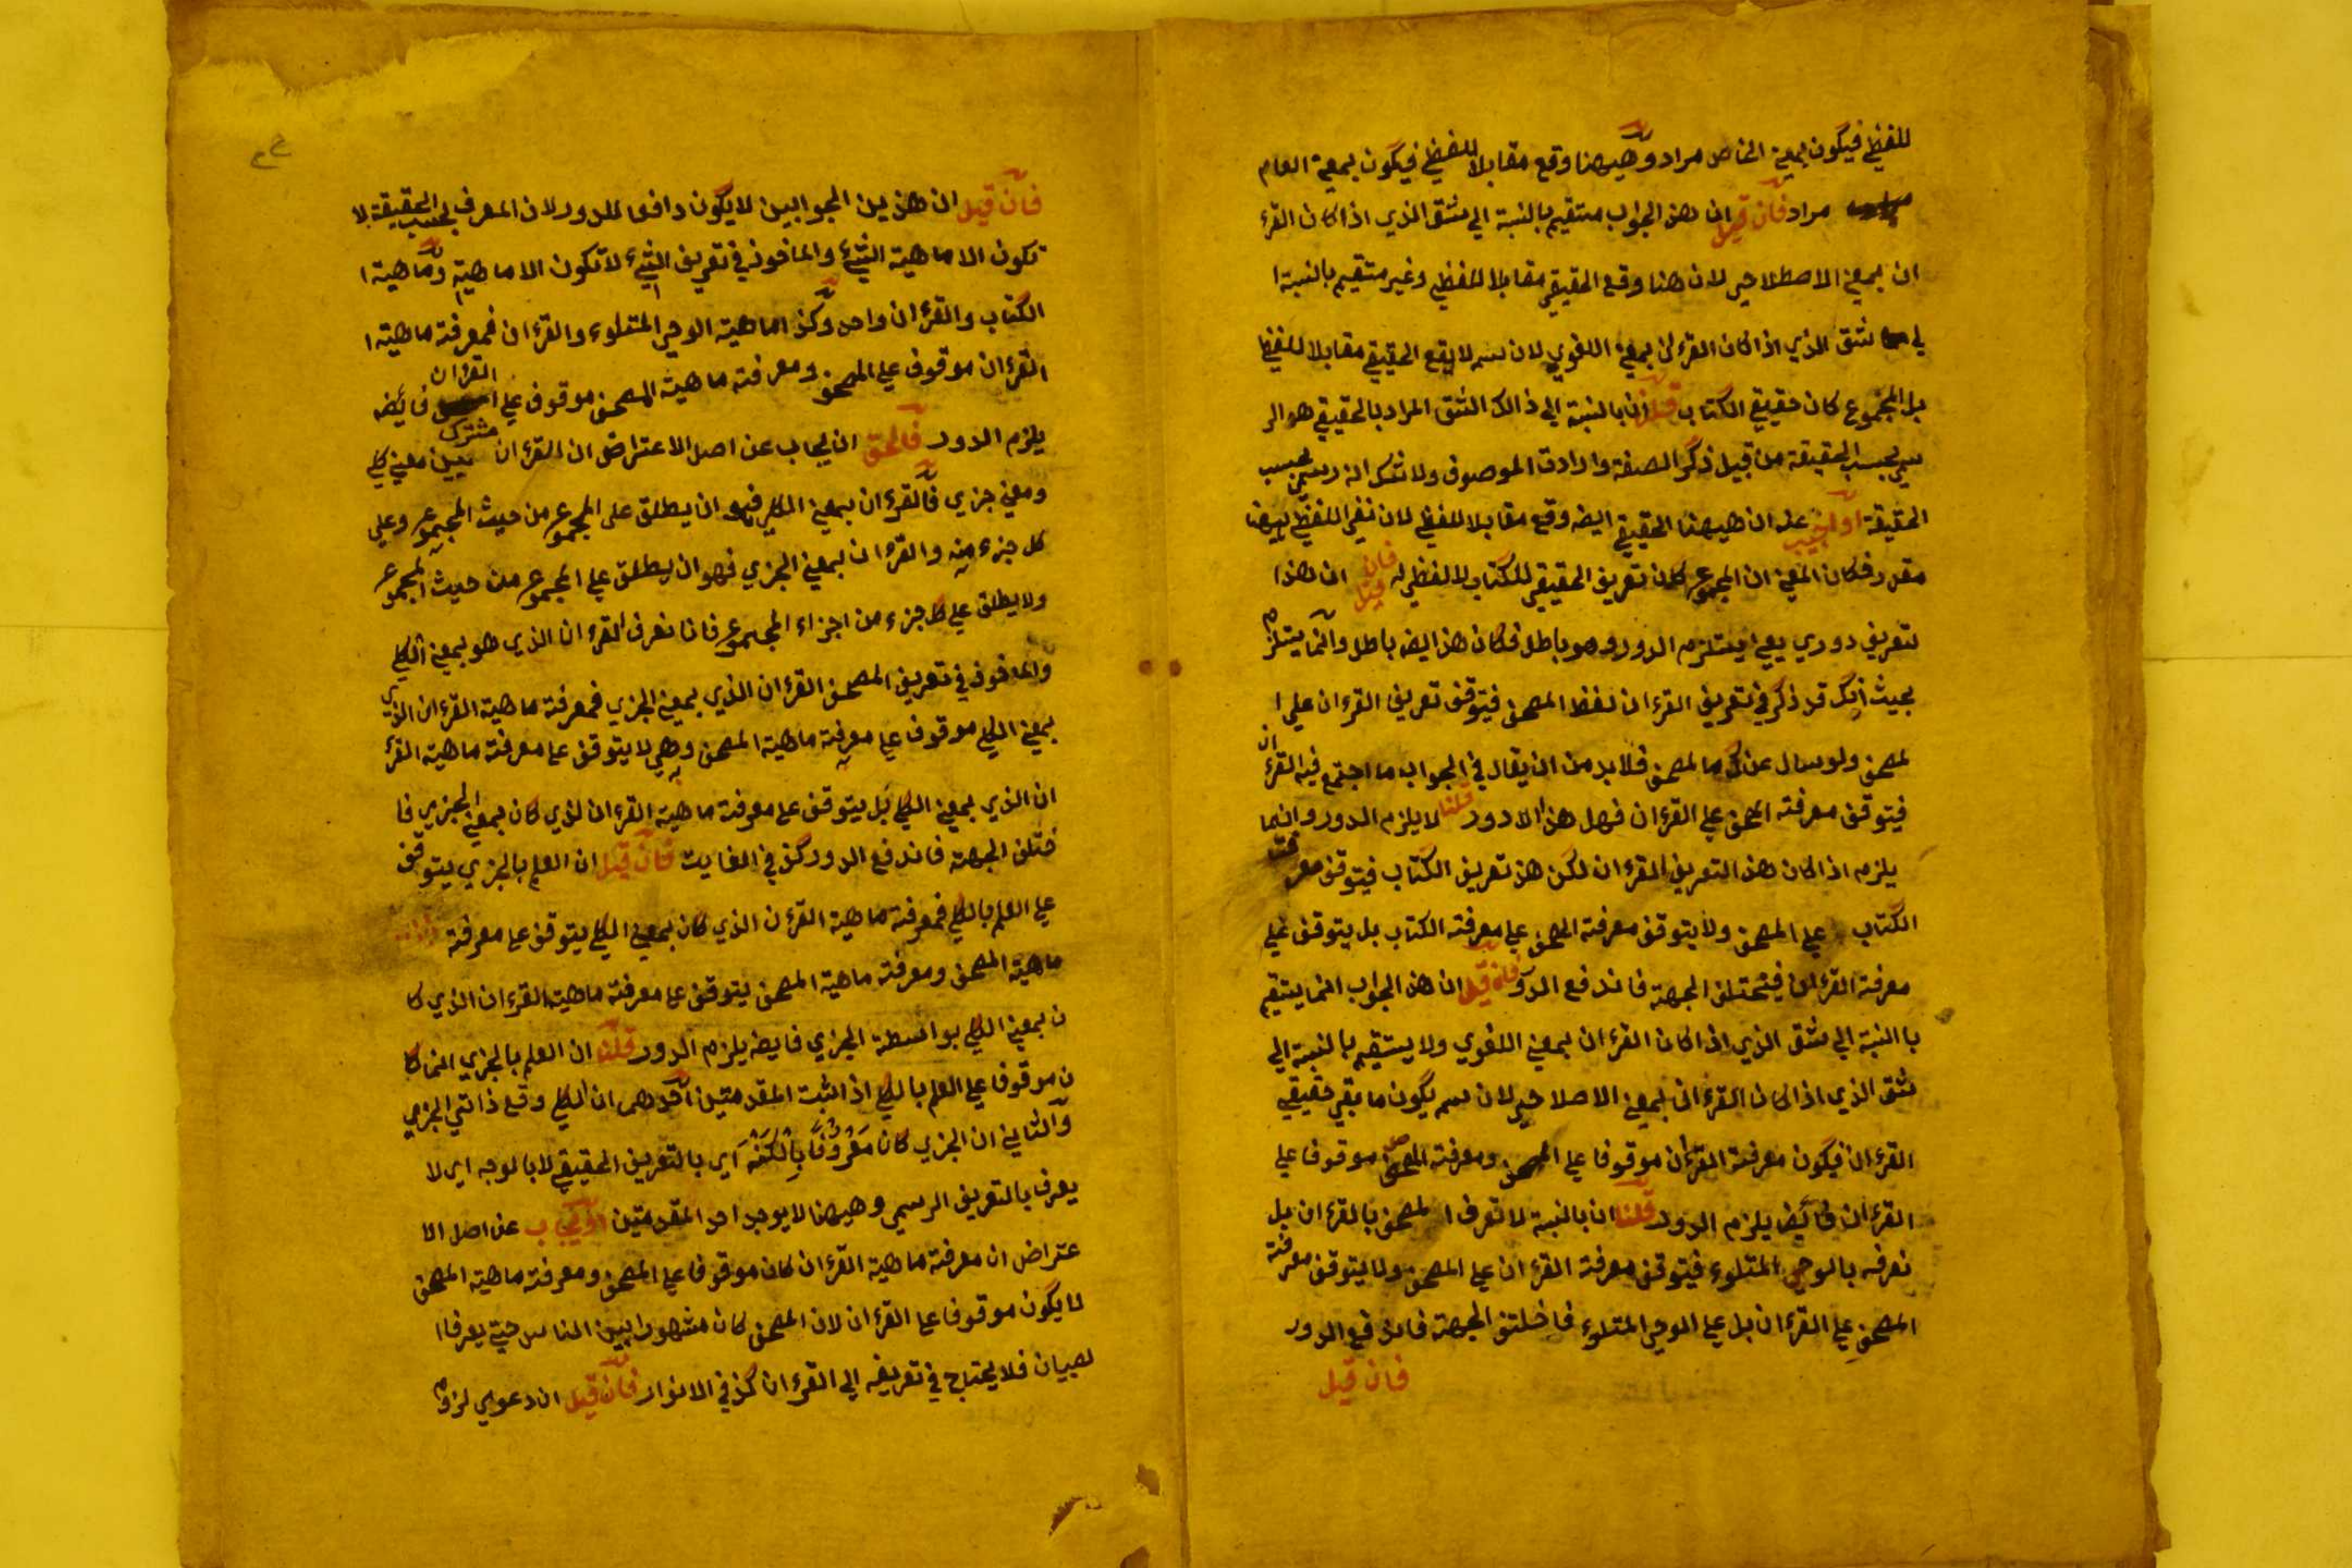 للفظي فيكون بمعني الخاص مراد وههنا وقع مقابلا للفظي فيكون بمعني العام
مراد فان قيل ان هذ الجواب مستقيم بالنسبة الي شق الذي اذا كان القرء
ان بمعني الاصطلاحي لان هنا وقع الحقيقي مقابلا للفظي وغير مستقيم بالنسبة ا
لي شق الذي اذا كان القرءان بمعني اللغوي لان لا يقع الحقيقي مقابلا للفظي
بل المجموع كان حقيقي الكتاب قلنا ان بالنسبة الي ذالك الشق المراد بالحقيقي هو الر
سمي بحسب الحقيقة من قبيل ذكر الصفة وارادة الموصوف ولا شك انه رسمي بحسب
الحقيقة او اجيب عنه ان ههنا الحقيقي ايضه وقع مقابلا للفظي لان نفي اللفظي ههنا
مقدر فكان المعني ان المجموع كان تعريف الحقيقي للكتاب لا لفظي له فان قيل ان هذا
تعريف دوري يعني يستلزم الدور وهو باطل فكان هذ ايضه باطل وانما يستلزم
بحيث انك قد ذكر في تعريف القرءان لفظ المصحف فيتوقف تعريف القرءان علي ا
لمصحف ولو سال عنك ما لمصحف فلابد من ان يقال في الجواب ما اجتمع فيه القرءان
فيتوقف معرفة المصحف علي القرءان فهل هذ الا دور قلنا لا يلزم الدور وانما
يلزم اذا كان هذ التعريف القرءان لكن هذ تعريف الكتاب فيتوقف معرفة
الكتاب علي المصحف ولا يتوقف معرفة المصحف علي معرفة الكتاب بل يتوقف علي
معرفة القرءان فيختلف الجهة فاندفع الدور فان قيل ان هذ الجواب انما يستقيم
با النسبة الي شق الذي اذا كان القرءان بمعني اللغوي ولا يستقيم بالنسبة الي
شق الذي اذا كان القرءان بمعني الاصلاحي لان يكون ما بقي حقيقي
القرءان فيكون معرفة القرءان موقوفا علي المصحف ومعرفة المصحف موقوفا علي
القرءان فايضه يلزم الدور قلنا ان بالنسبة لا تعرف المصحف بالقرءان بل
نعرفه بالوحي المتلوء فيتوقف معرفة القرءان علي المصحف ولا يتوقف معرفة
المصحف علي القرءان بل علي الوحي المتلوء فاختلف الجهة فاندفع الدور
فان قيل
فان قيل ان هذين الجوابين لا يكون دافعا للدور لان المعرف بحسب الحقيقة لا
تكون الا ماهية الشيء والماخوذ في تعريف الشيء لا تكون الا ماهية وماهية ا
الكتاب والقرءان واحد وكذا ماهية الوحي المتلوء والقرءان فمعرفة ماهية ا
القرءان موقوف علي المصحف ومعرفة ماهية المصحف موقوف علي القرءان فايضه
يلزم الدور فالحق ان يجاب عن اصل الاعتراض ان القرءان مشترك بين معني كلي
ومعني جزي فالقرءان بمعني الكلي فهو ان يطلق علي المجموع من حيث المجموع وعلي
كل جزء منه والقرءان بمعني الجزي فهو ان يطلق علي المجموع من حيث المجموع
ولا يطلق علي كل جزء من اجزاء المجموع فانا نعرف القرءان الذي هو بمعني الكلي
والماخوذ في تعريف المصحف القرءان الذي بمعني الجزي فمعرفة ماهية القرءان الذي
بمعني الكلي موقوف علي معرفة ماهية المصحف وهي لا يتوقف علي معرفة ماهية القرء
ان الذي بمعني الكلي بل يتوقف علي معرفة ماهية القرءان لذي كان بمعني الجزي فا
ختلف الجهة فاندفع الدور كذ في الغايت فان قيل ان العلم بالجزي يتوقف
علي العلم بالكلي فمعرفة ماهية القرءان الذي كان بمعني الكلي يتوقف علي معرفة
ماهية المصحف ومعرفة ماهية المصحف يتوقف علي معرفة ماهية القرءان الذي كا
ن بمعني الكلي بواسطة الجزي فايضه يلزم الدور قلنا ان العلم بالجزي انما كا
ن موقوفا علي العلم بالكلي اذا ثبت المقدمتين احدهما ان الكلي وقع ذاتي الجزي
والثاني ان الجزي كان معروفا بالكنه اي بالتعريف الحقيقي لا بالوجه اي لا
يعرف بالتعريف الرسمي وههنا لا يوجد احد المقدمتين او يجاب عن اصل الا
عتراض ان معرفة ماهية القرءان كان موقوفا علي المصحف ومعرفة ماهية المصحف
لا يكون موقوفا علي القرءان لان المصحف كان مشهورا بين الناس حتي يعرفه ا
لصبيان فلا يحتاج في تعريفه الي القرءان كذ في الانوار فان قيل ان دعوي لزوم